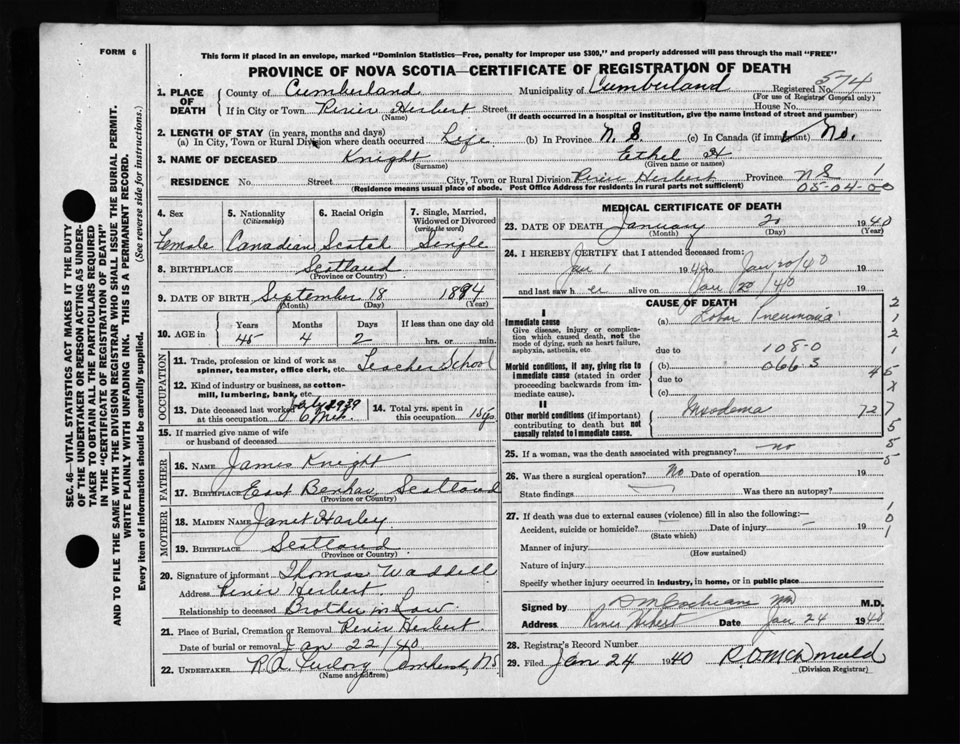 FORM 6
This form if placed in an envelope, marked "Dominion Statistics—Free, penalty for improper use $300," and properly addressed will pass through the mail "FREE"
PROVINCE OF NOVA SCOTIA—CERTIFICATE OF REGISTRATION OF DEATH
574
1. PLACE OF DEATH County of Cumberland Municipality of Cumberland Registered No.
(For use of Registrar General only)
If in City or Town River Herbert Street House No.
(Name) (If death occurred in a hospital or institution, give the name instead of street and number)
2. LENGTH OF STAY (in years, months and days)
(a) In City, Town or Rural Division where death occurred Life (b) In Province N.S (c) In Canada (if immigrant) No.
3. NAME OF DECEASED Knight Ethel H
(Surname) (Given name or names)
RESIDENCE No. Street City, Town or Rural Division River Herbert Province NS 1
(Residence means usual place of abode. Post Office Address for residents in rural parts not sufficient) 05-04-00
4. Sex 5. Nationality (Citizenship) 6. Racial Origin 7. Single, Married, Widowed or Divorced (write the word)
Female Canadian Scotch Single
8. BIRTHPLACE Scotland
(Province or Country)
9. DATE OF BIRTH September 18 1894
(Month) (Day) (Year)
10. AGE in Years Months Days If less than one day
45 4 2 hrs. or min.
OCCUPATION
11. Trade, profession or kind of work as spinner, teamster, office clerk, etc. Teacher School
12. Kind of industry or business, as cotton-mill, lumbering, bank, etc.
13. Date deceased last worked at this occupation 1939 14. Total yrs. spent in this occupation 15 yrs
15. If married give name of wife or husband of deceased
FATHER
16. NAME James Knight
17. BIRTHPLACE East Benhar Scotland
(Province or Country)
MOTHER
18. MAIDEN NAME Janet Harley
19. BIRTHPLACE Scotland
(Province or Country)
20. Signature of informant Thomas Waddell
Address River Herbert.
Relationship to deceased Brother in Law.
21. Place of Burial, Cremation or Removal River Herbert.
Date of burial or removal Jan 22/40
22. UNDERTAKER Amherst, NS
(Name and address)
MEDICAL CERTIFICATE OF DEATH
23. DATE OF DEATH January 20 1940
(Month) (Day) (Year)
24. I HEREBY CERTIFY that I attended deceased from
Jan 1 1940 to Jan 20/40 19
and last saw h er alive on Jan 20/40 19
CAUSE OF DEATH
I
Immediate cause (a) Lobar Pneumonia
Give disease, injury or complication which caused death, not the mode of dying, such as heart failure, asphyxia, asthenia, etc
due to 108-0
Morbid conditions, if any, giving rise to immediate cause (stated in order proceeding backwards from immediate cause). (b) 066-3
due to
(c)
II
Other morbid conditions (if important) contributing to death but not causally related to immediate cause. Myxodema
25. If a woman, was the death associated with pregnancy? no
26. Was there a surgical operation? No Date of operation 19
State findings Was there an autopsy?
27. If death was due to external causes (violence) fill in also the following:—
Accident, suicide or homicide? Date of injury 19
(State which)
Manner of injury
(How sustained)
Nature of injury
Specify whether injury occurred in industry, in home, or in public place
Signed by D M Cochrane MD M.D.
Address River Hebert Date Jan 24 1940
28. Registrar's Record Number
29. Filed Jan 24 1940 R O McDonald
(Division Registrar)
SEC. 46—VITAL STATISTICS ACT MAKES IT THE DUTY OF THE UNDERTAKER OR PERSON ACTING AS UNDERTAKER TO OBTAIN ALL THE PARTICULARS REQUIRED IN THE "CERTIFICATE OF REGISTRATION OF DEATH" AND TO FILE THE SAME WITH THE DIVISION REGISTRAR WHO SHALL ISSUE THE BURIAL PERMIT.
WRITE PLAINLY WITH UNFADING INK. THIS IS A PERMANENT RECORD.
Every item of information should be carefully supplied. (See reverse side for instructions.)